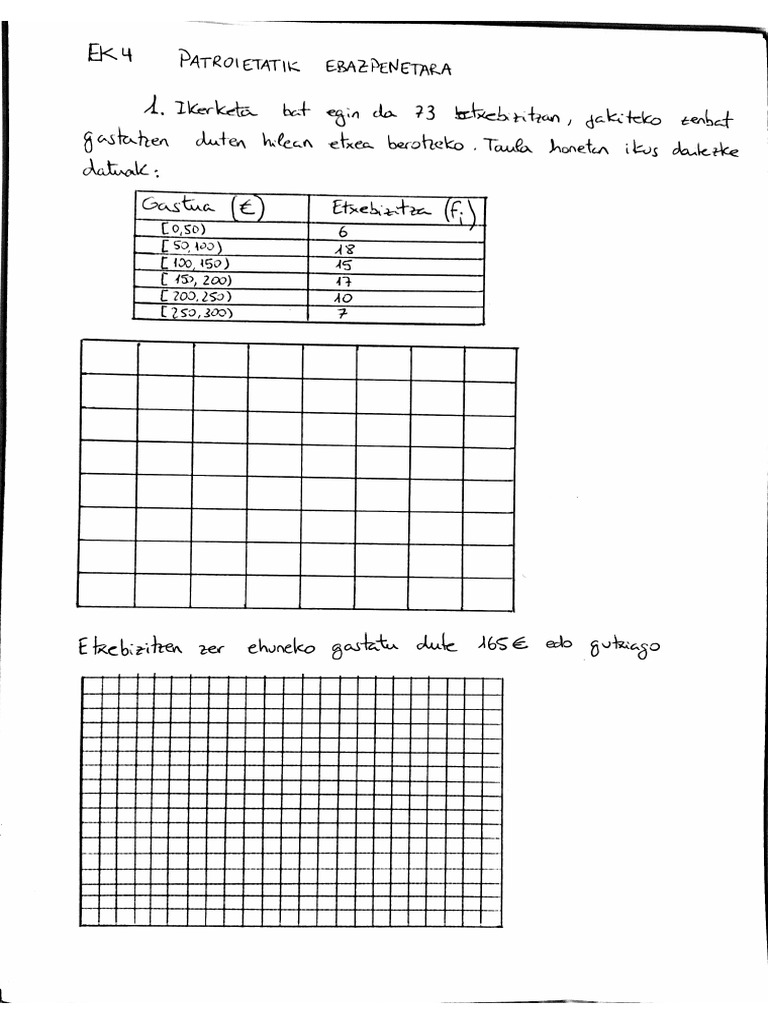 EK4 PATROIETATIK EBAZPENETARA
1. Ikerketa bat egin da 73 etxebizitzan, jakiteko zenbat
gastatzen duten hilean etxea berotzeko. Taula honetan ikus daitezke
datuak:
Gastua (€) Etxebizitza (fi)
[0,50) 6
[50,100) 18
[100,150) 15
[150,200) 17
[200.250) 10
[250,300) 7
Etxebizitzen zer ehuneko gastatu dute 165€ edo gutxiago